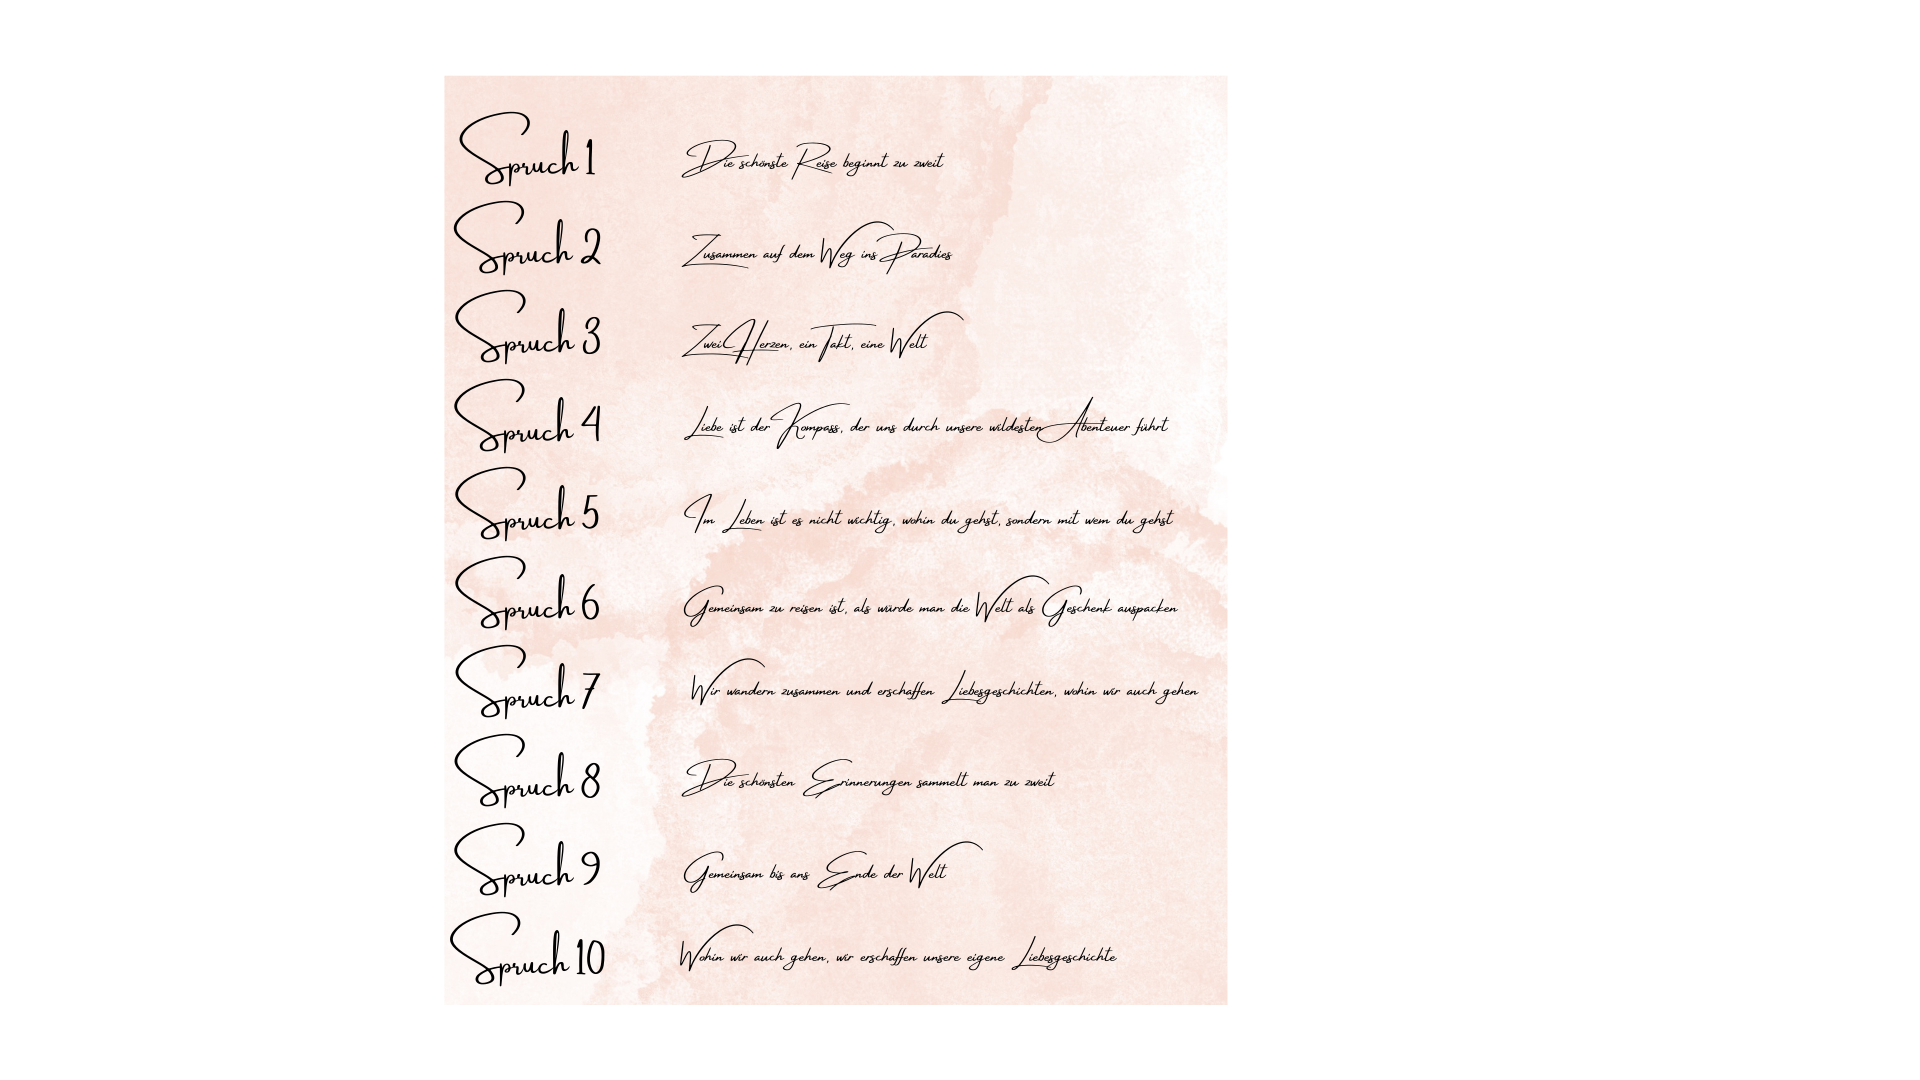 Spruch 1 Die schönste Reise beginnt zu zweit
Spruch 2 Zusammen auf dem Weg ins Paradies
Spruch 3 Zwei Herzen, ein Takt, eine Welt
Spruch 4 Liebe ist der Kompass, der uns durch unsere wildesten Abenteuer führt
Spruch 5 Im Leben ist es nicht wichtig, wohin du gehst, sondern mit wem du gehst
Spruch 6 Gemeinsam zu reisen ist, als würde man die Welt als Geschenk auspacken
Spruch 7 Wir wandern zusammen und erschaffen Liebesgeschichten, wohin wir auch gehen
Spruch 8 Die schönsten Erinnerungen sammelt man zu zweit
Spruch 9 Gemeinsam bis ans Ende der Welt
Spruch 10 Wohin wir auch gehen, wir erschaffen unsere eigene Liebesgeschichte